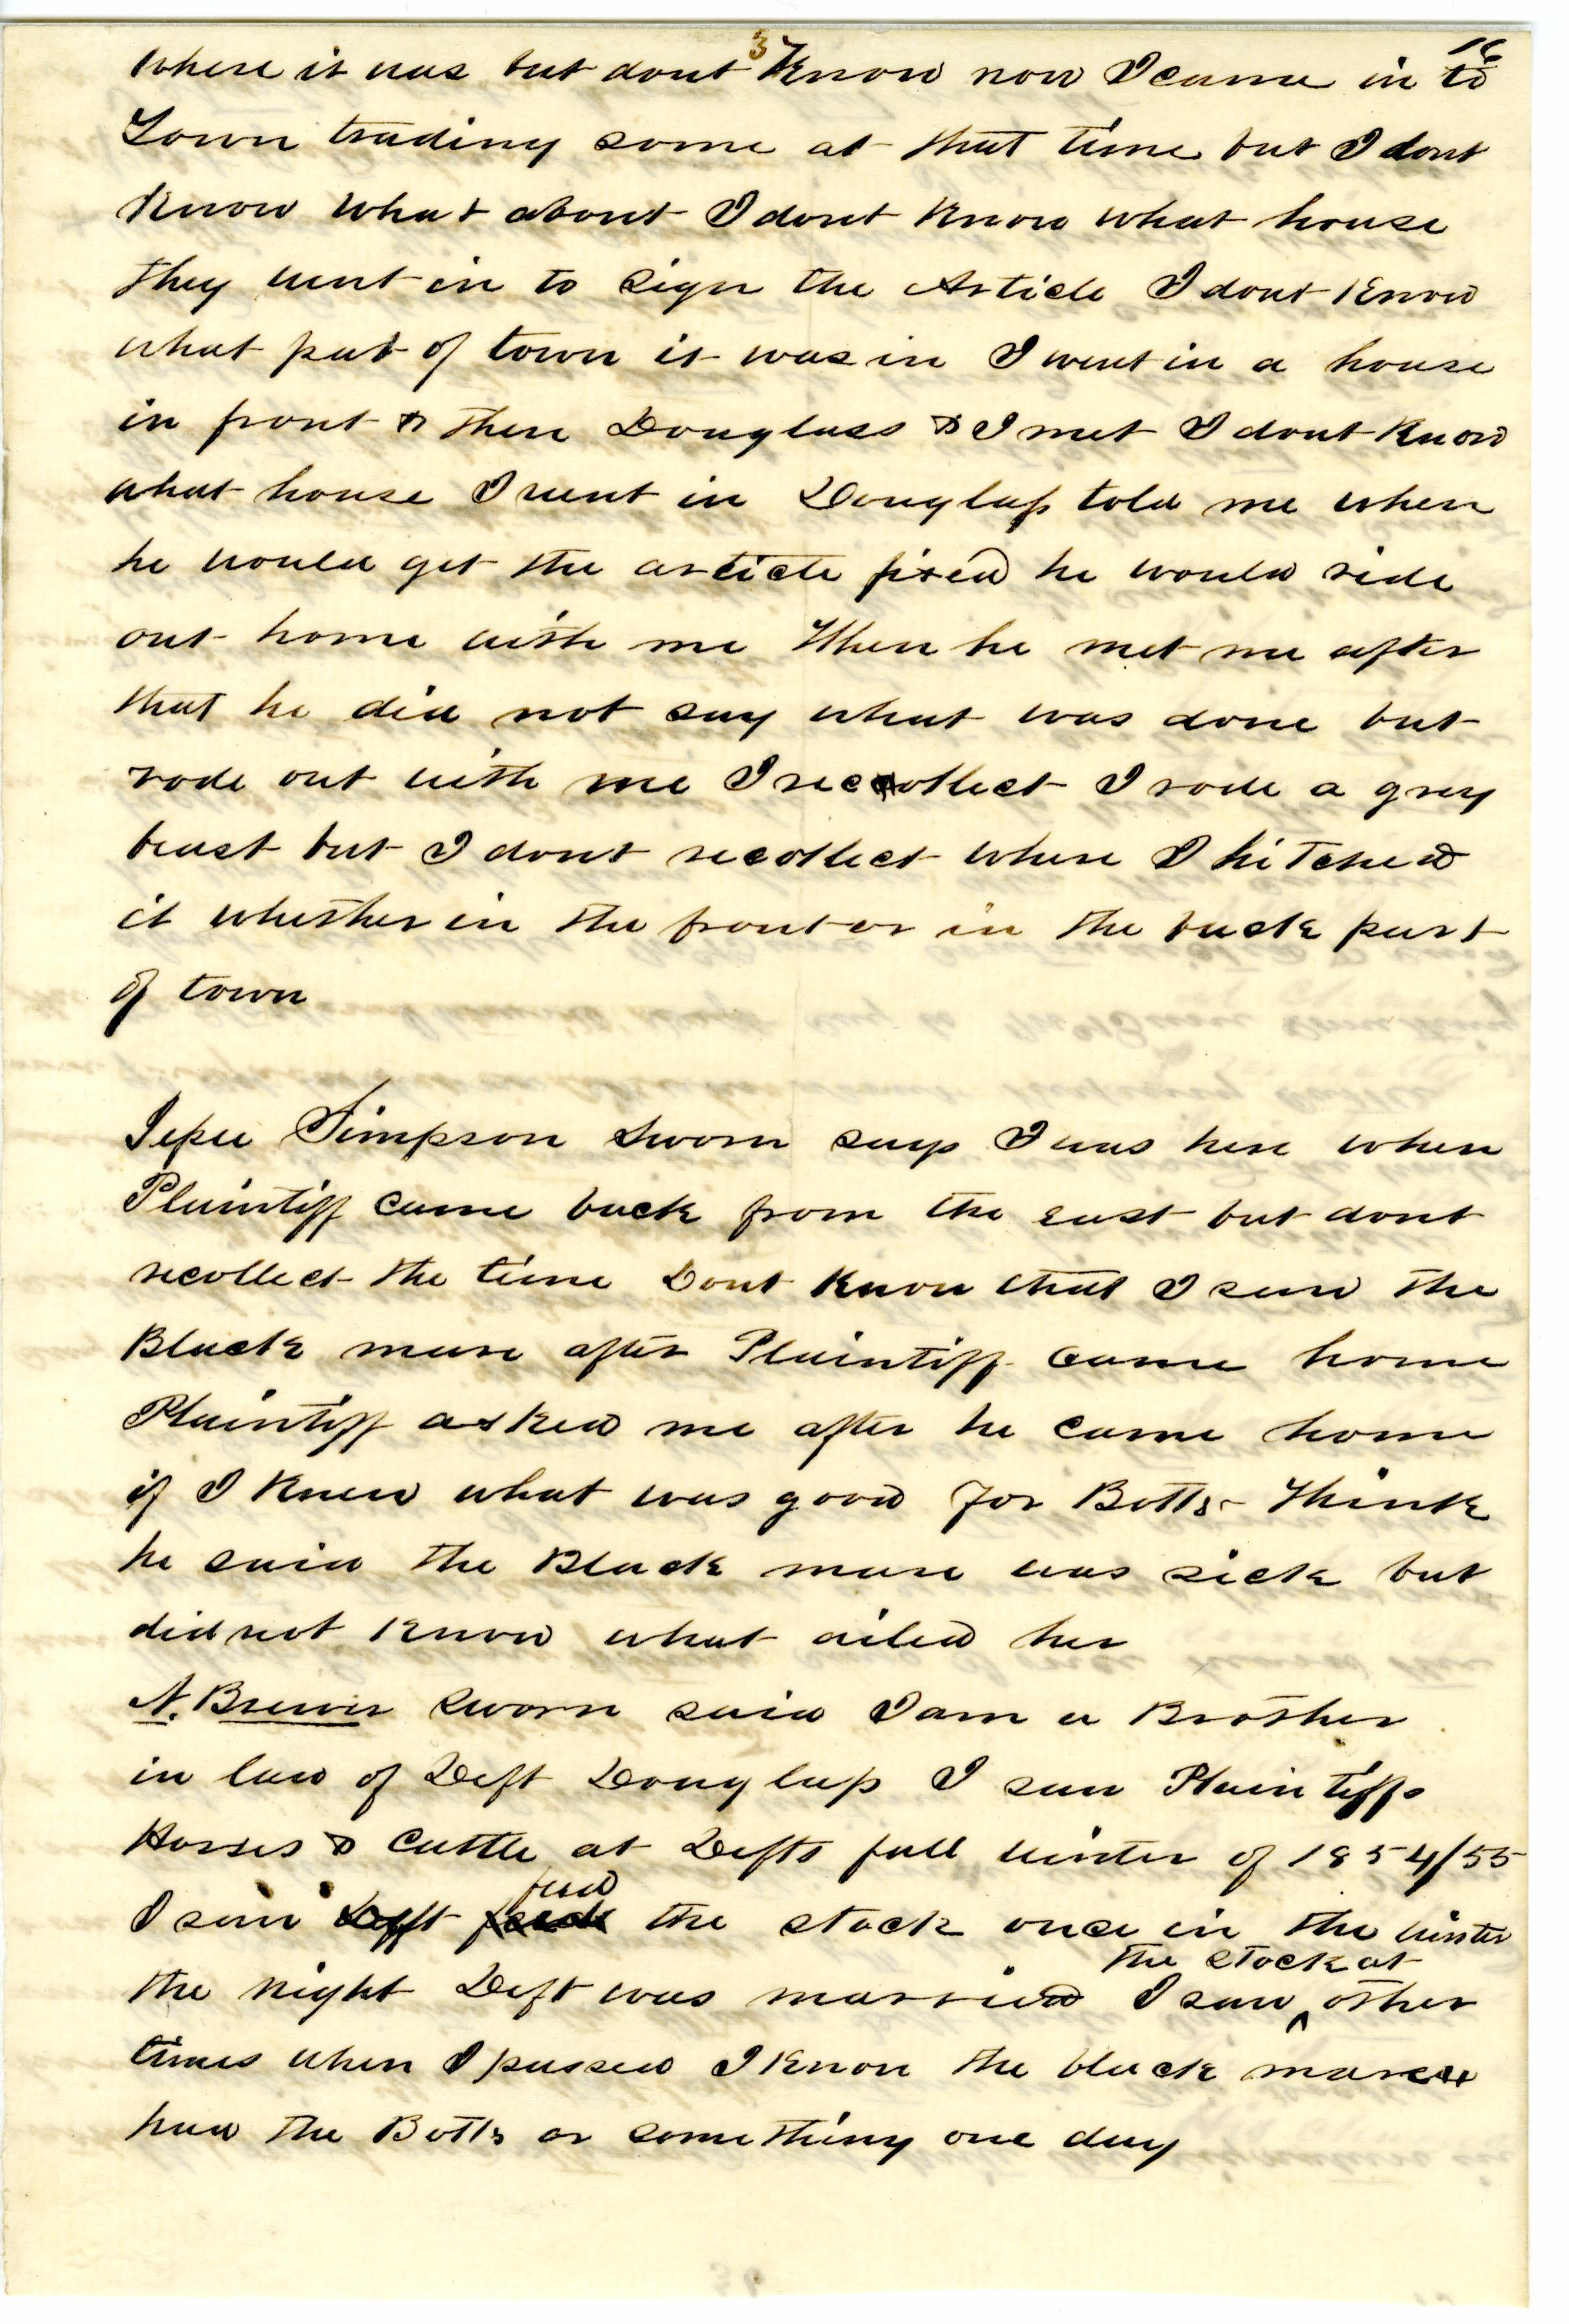 3
16
Where it was but dont Know now I came in to
Town trading some at that time but I dont
Know what about I dont Know what house
they went in to sign the Article I dont Know
what part of town it was in I went in a house
in front & there Douglass & I met I dont Know
what house I went in Douglass told me when
he would get the article fixed he would ride
out home with me When he met me after
that he did not say what was done but
rode out with me I reccollect I rode a grey
beast but I dont recollect where I hitched
it whether in the front or in the back part
of town
Jesse Simpson Sworn says I was here when
Plaintiff came back from the east but dont
recollect the time Dont Know that I saw the
Black mare after Plaintiff came home
Plaintiff asked me after he came home
if I Knew what was good for Botts - Think
he said the Black mare was sick but
did not Know what ailed her
N. Brewer Sworn said I am a Brother
in law of Deft Douglass I saw Plaintiffs
Horses & Cattle at Defts fall winter of 1854/55
I saw Deft feed the stock once in the winter
the night Deft was married I saw the stock at other
times when I passed I Know the black mare
had the Botts or something one day